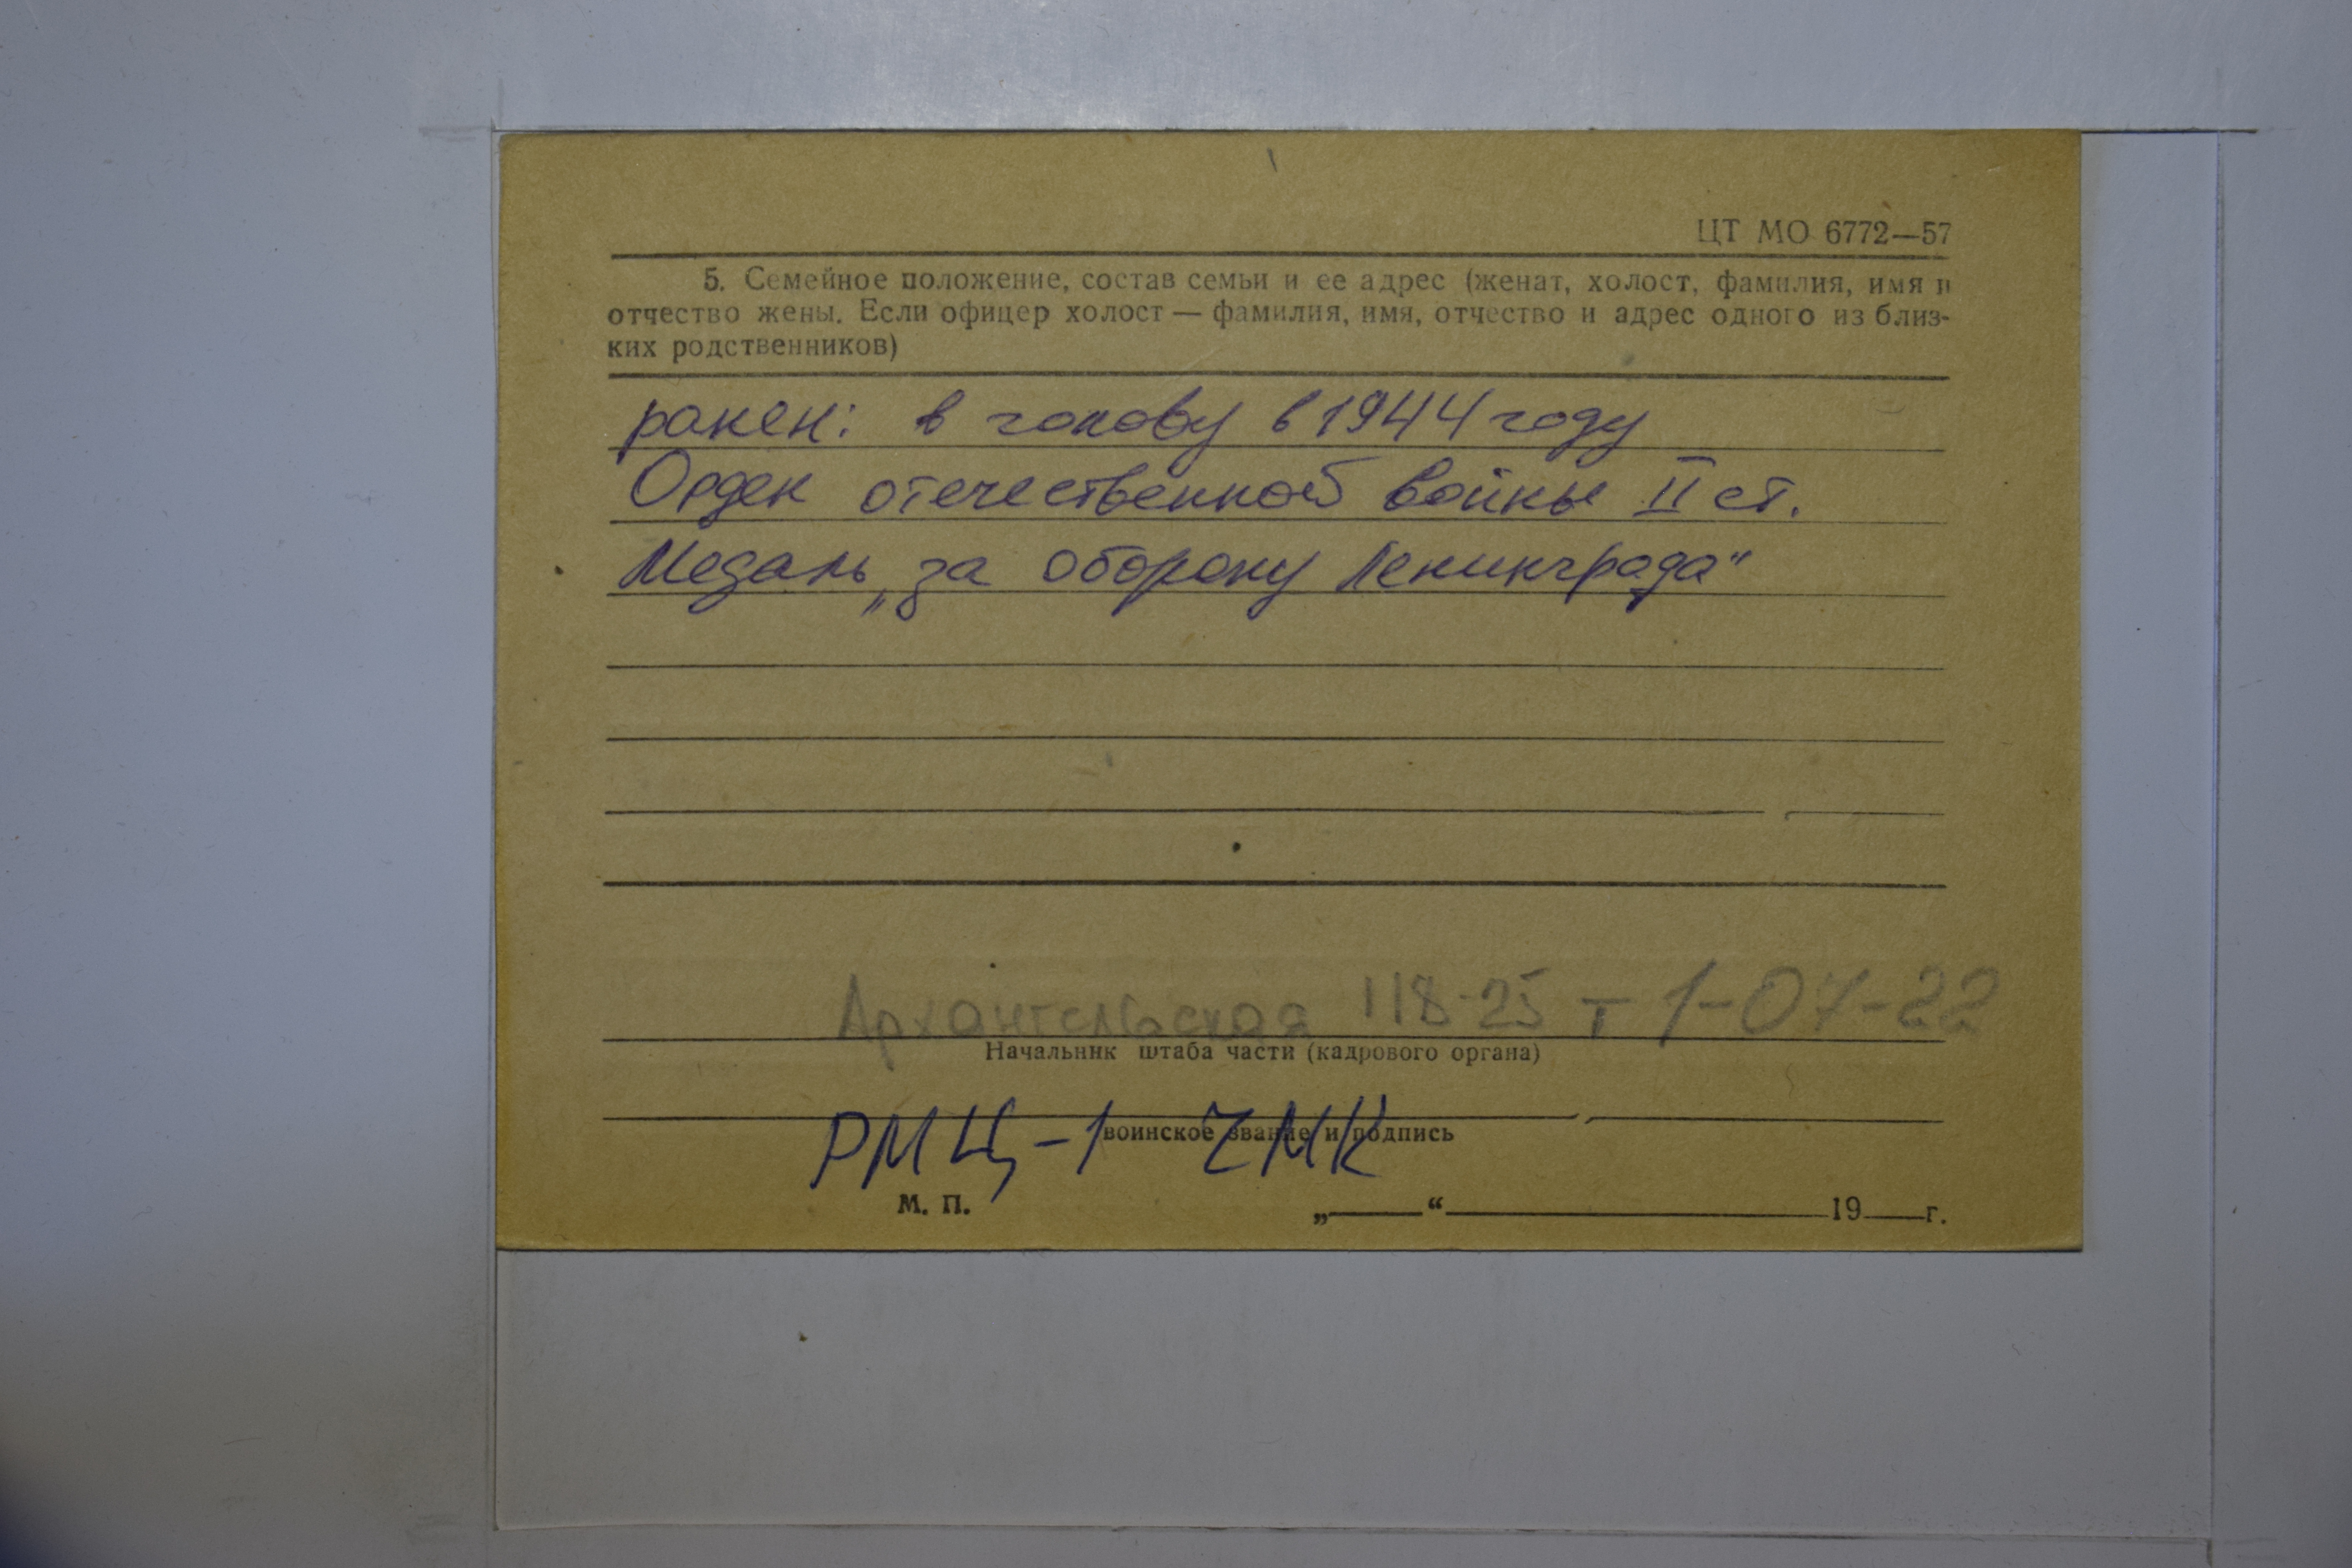 ЦТ МО 6772—57
5. Семейное положение, состав семьи и ее адрес (женат, холост, фамилия, имя и
отчество жены. Если офицер холост — фамилия, имя, отчество и адрес одного из близ-
ких родственников)
ранен: в голову в 1944 году
Орден отечественной войны II ст.
Медаль „за оборону Ленинграда"
Архангельская 118-25 т 1-07-22
Начальник штаба части (кадрового органа)
РМЦ-1 ZМК
воинское звание и подпись
М. П. „____“ ____ 19__г.